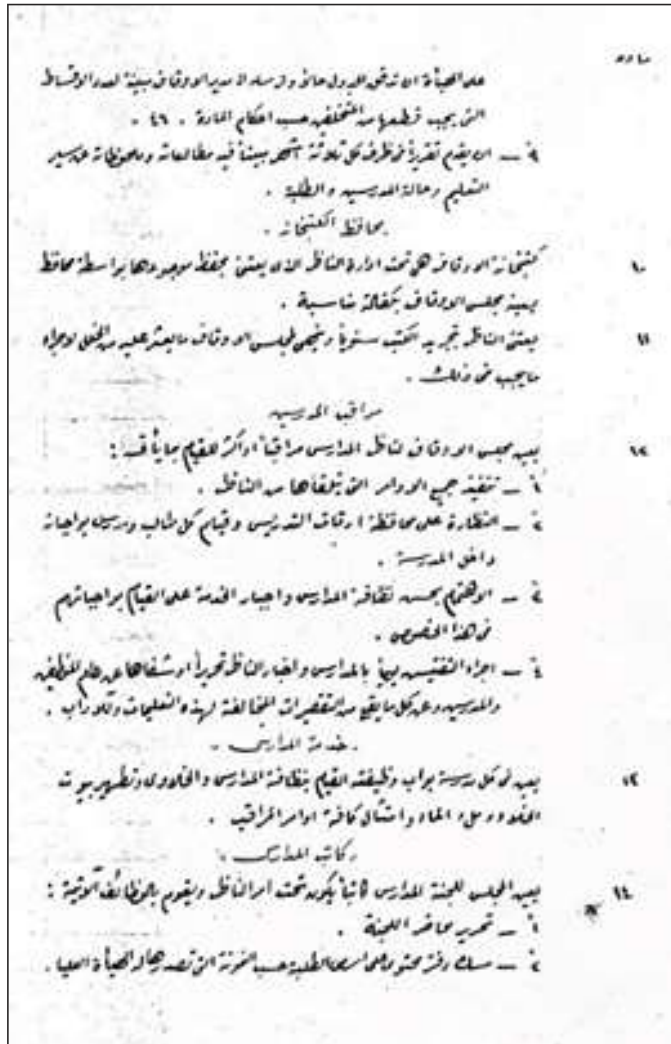 ماده
على الهيأة ان تدقق الجدول حالاً وترسله لمدير الاوقاف مبينة عدد الاقساط
التي يجب قطعها من المتخلف حسب احكام المادة ٤٦ .
٩ــ ان يقدم تقريراً في ظرف كل ثلاثة اشهر مبيناً فيه مطالعاته وملحوظاته عن سير
التعليم وحالة المدرسين والطلبة .
محافظ الكتبخانة .
١٠ كتبخانة الاوقاف هي تحت ادارة الناظر الذي يعتني بحفظ موجودها بواسطة محافظ
يعينه مجلس الاوقاف بكفالة مناسبة .
١١ يعتني الناظر بتجريد الكتب سنوياً وينهي لمجلس الاوقاف ما يعثر عليه من الخلل لاجراء
ما يجب في ذلك .
مراقب المدرسين
١٢ يعين مجلس الاوقاف لناظر المدارس مراقباً او اكثر للقيام بما يأتي :
١ــ تنفيذ جميع الاوامر التي يتلقاها من الناظر .
٢ــ النظارة على محافظة اوقات التدريس وقيام كل طالب ومدرس بواجباته
داخل المدرسة .
٣ــ الاهتمام بحسن نظافة المدارس واجبار الخدمة على القيام بواجباتهم
في هذا الخصوص .
٤ــ اجراء التفتيش يومياً بالمدارس واخبار الناظر تحريراً او شفاهاً عن دوام الموظفين
والمدرسين وعن كل ما يقع من التقصيرات المخالفة لهذه التعليمات وللآداب .
خدمة المدارس .
١٣ يعين في كل مدرسة بواب وظيفته القيام بنظافة المدارس والخلاوى وتطهير بيوت
الخلاء وملء الماء وامتثال كافة اوامر المراقب .
كاتب المدارس .
١٤ يعين المجلس للجنة المدارس كاتباً يكون تحت امر الناظر ويقوم بالوظائف الآتية :
١ــ تحرير محاضر اللجنة .
٢ــ مسك دفتر محتو على اسماء الطلبة حسب النمونة التي تصدرها له الهيأة العليا .